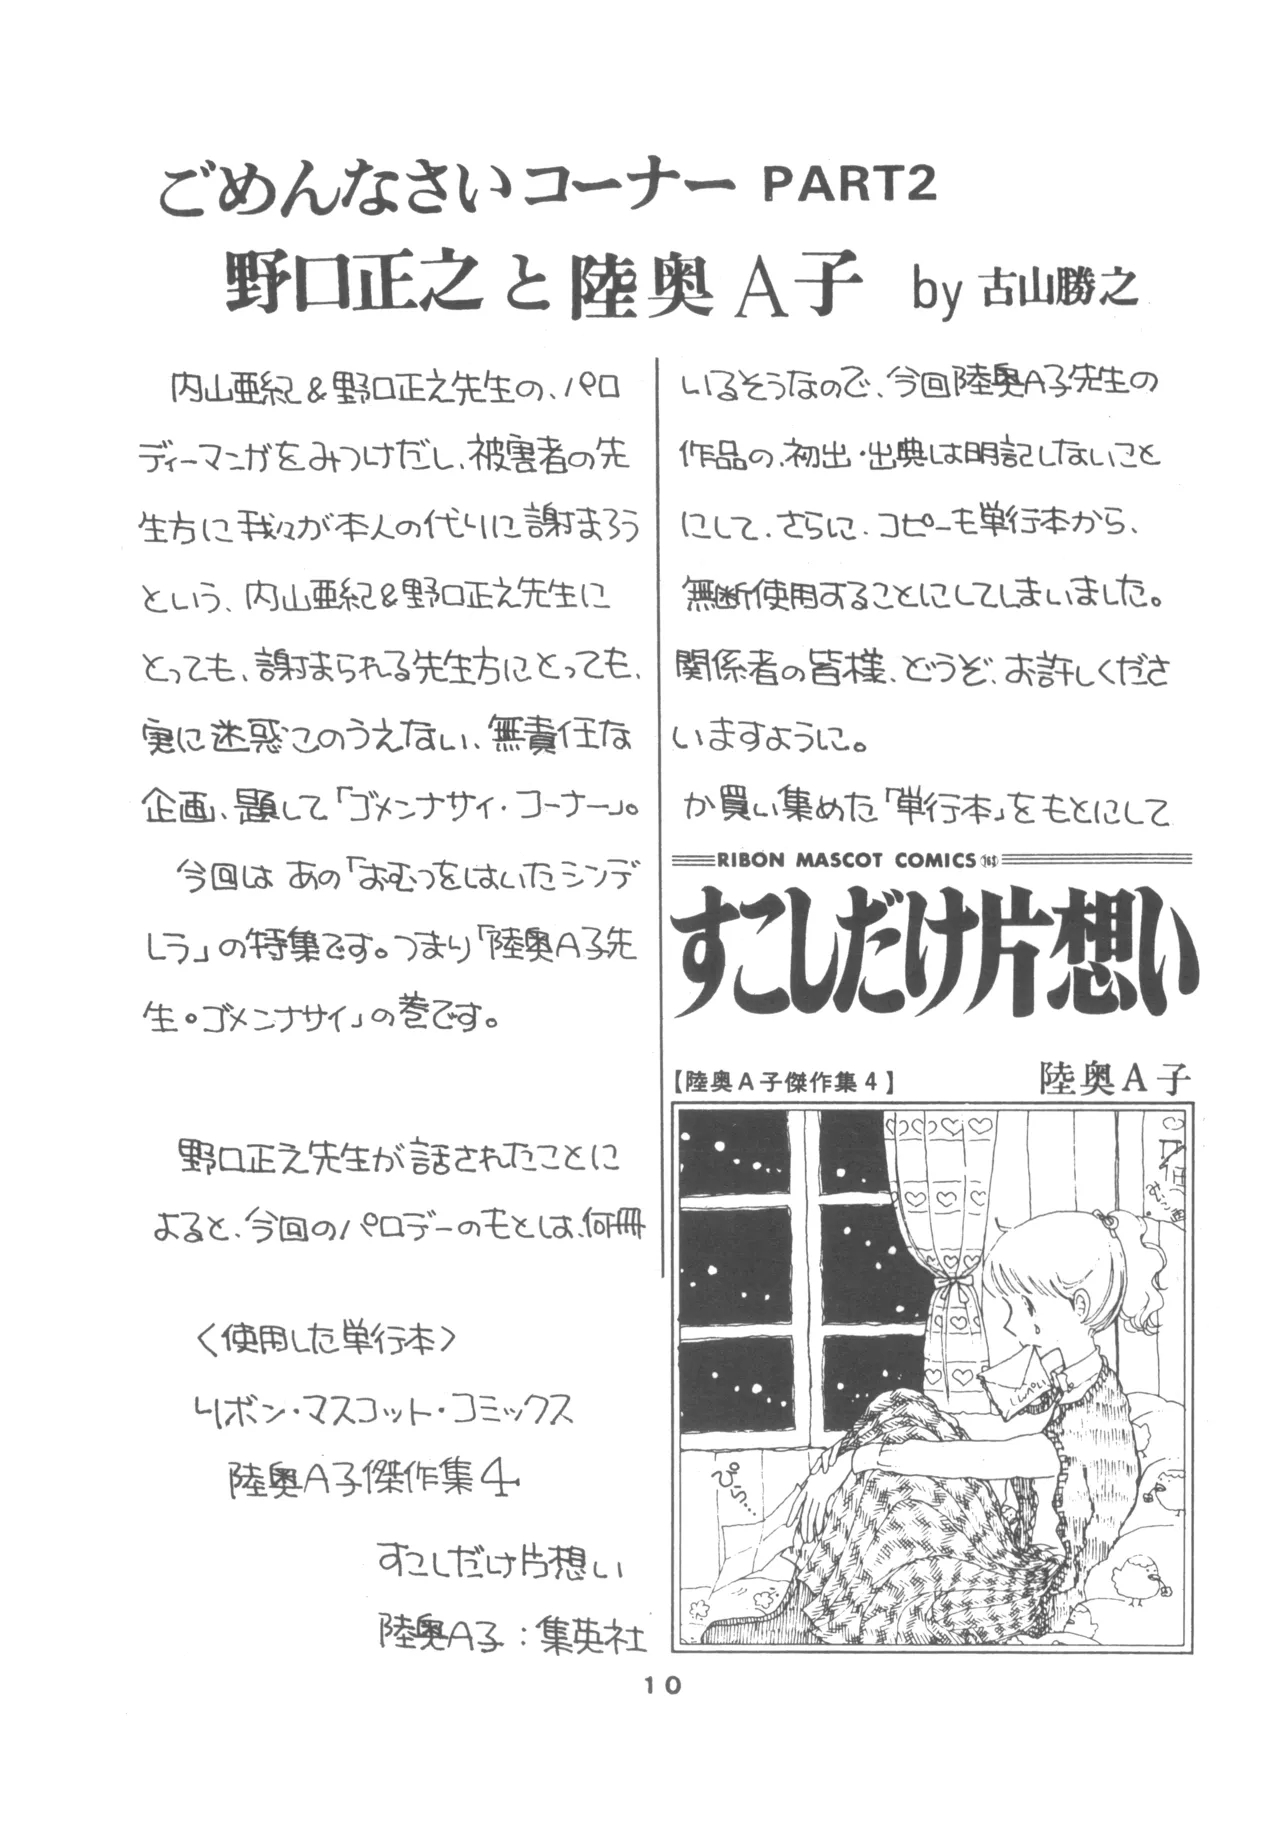 ごめんなさいコーナー PART2
野口正之と陸奥A子 by 古山勝之
内山亜紀&野口正之先生の、パロ
ディーマンガをみつけだし、被害者の先
生方に我々が本人の代りに謝まろう
という、内山亜紀&野口正之先生に
とっても、謝まられる先生方にとっても、
実に迷惑このうえない、無責任な
企画、題して「ゴメンナサイ・コーナー」。
今回は あの「おむつをはいたシンデ
レラ」の特集です。つまり「陸奥A子先
生。ゴメンナサイ」の巻です。
野口正之先生が話されたことに
よると、今回のパロデーのもとは、何冊
<使用した単行本>
リボン・マスコット・コミックス
陸奥A子傑作集4
すこしだけ片想い
陸奥A子：集英社
いるそうなので、今回陸奥A子先生の
作品の、初出・出典は明記しないこと
にして、さらに、コピーも単行本から、
無断使用することにしてしまいました。
関係者の皆様、どうぞ、お許しくださ
いますように。
か買い集めた「単行本」をもとにして
RIBON MASCOT COMICS
すこしだけ片想い
【陸奥A子傑作集4】
陸奥A子
ぴら…
10